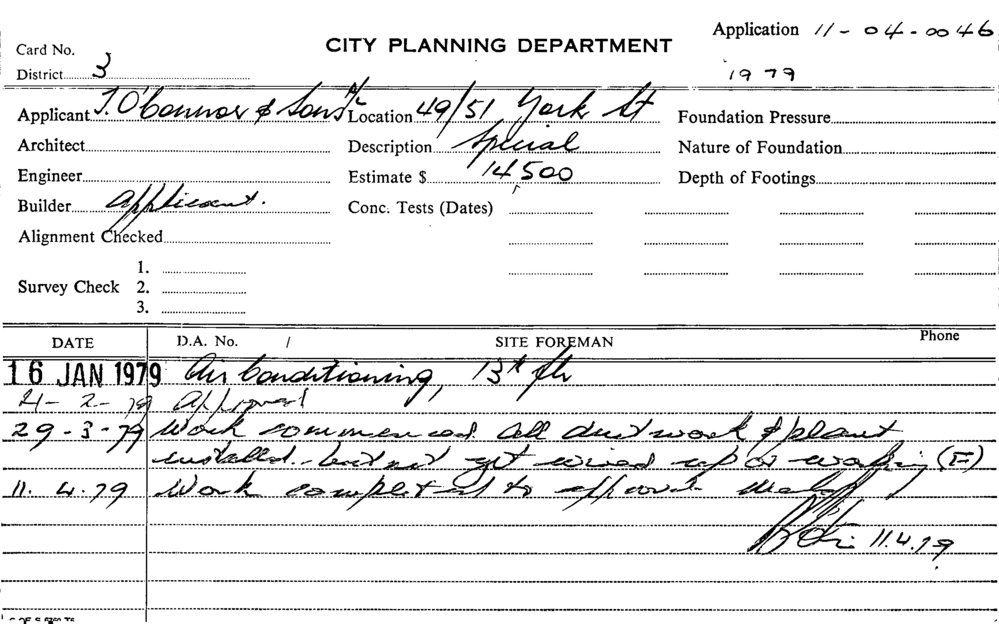 Application 11-04-0046
CITY PLANNING DEPARTMENT
Card No.
District 3
1979
Applicant J. O'Connor & Sons P/L Location 49/51 York St Foundation Pressure
Architect Description Special Nature of Foundation
Engineer Estimate $ 14,500 Depth of Footings
Builder Applicant. Conc. Tests (Dates)
Alignment Checked
1.
Survey Check 2.
3.
DATE D.A. No. / SITE FOREMAN Phone
16 JAN 1979 Air Conditioning, 13th flr
21-2-79 Approved
29-3-79 Work commenced. All ductwork & plant
installed.. but not yet wired up or working (F)
11.4.79 Work completed to approval
11.4.79